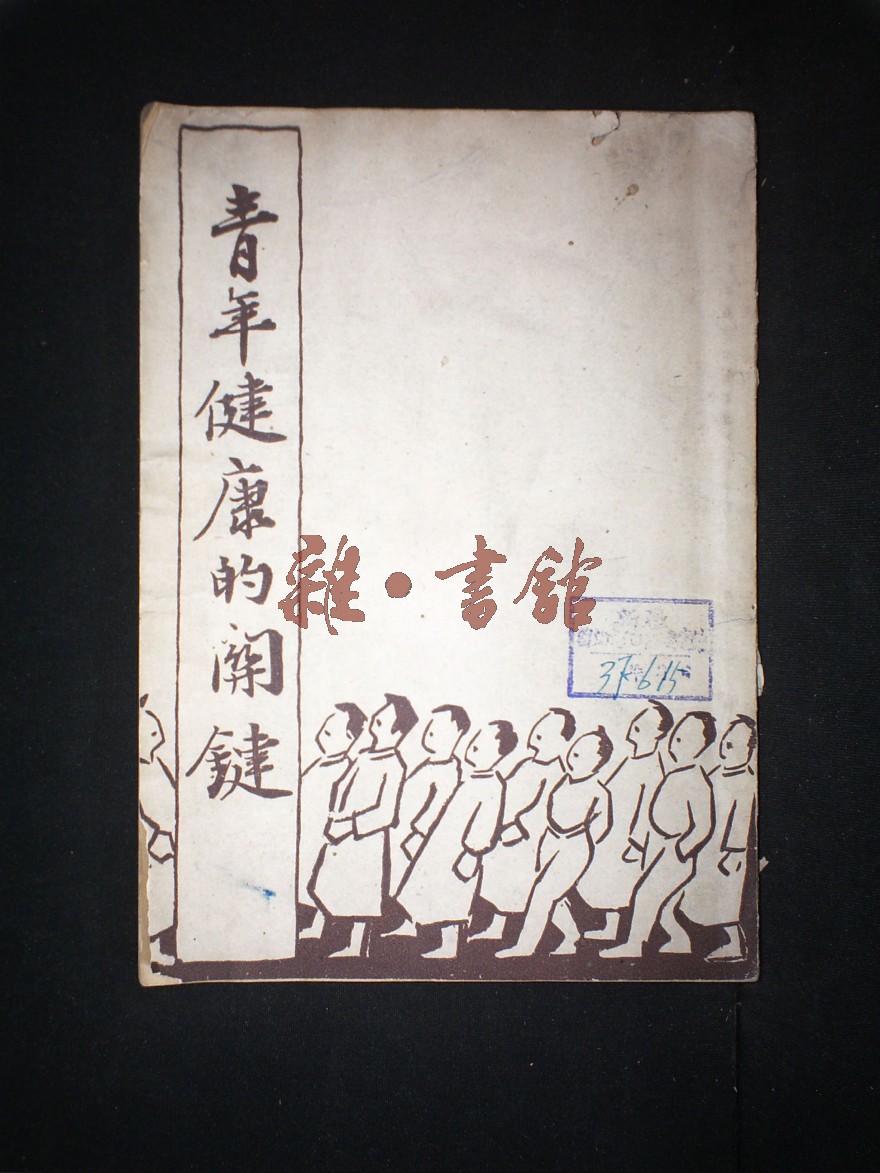 青年健康的關鍵
雜·書館
37.6.15